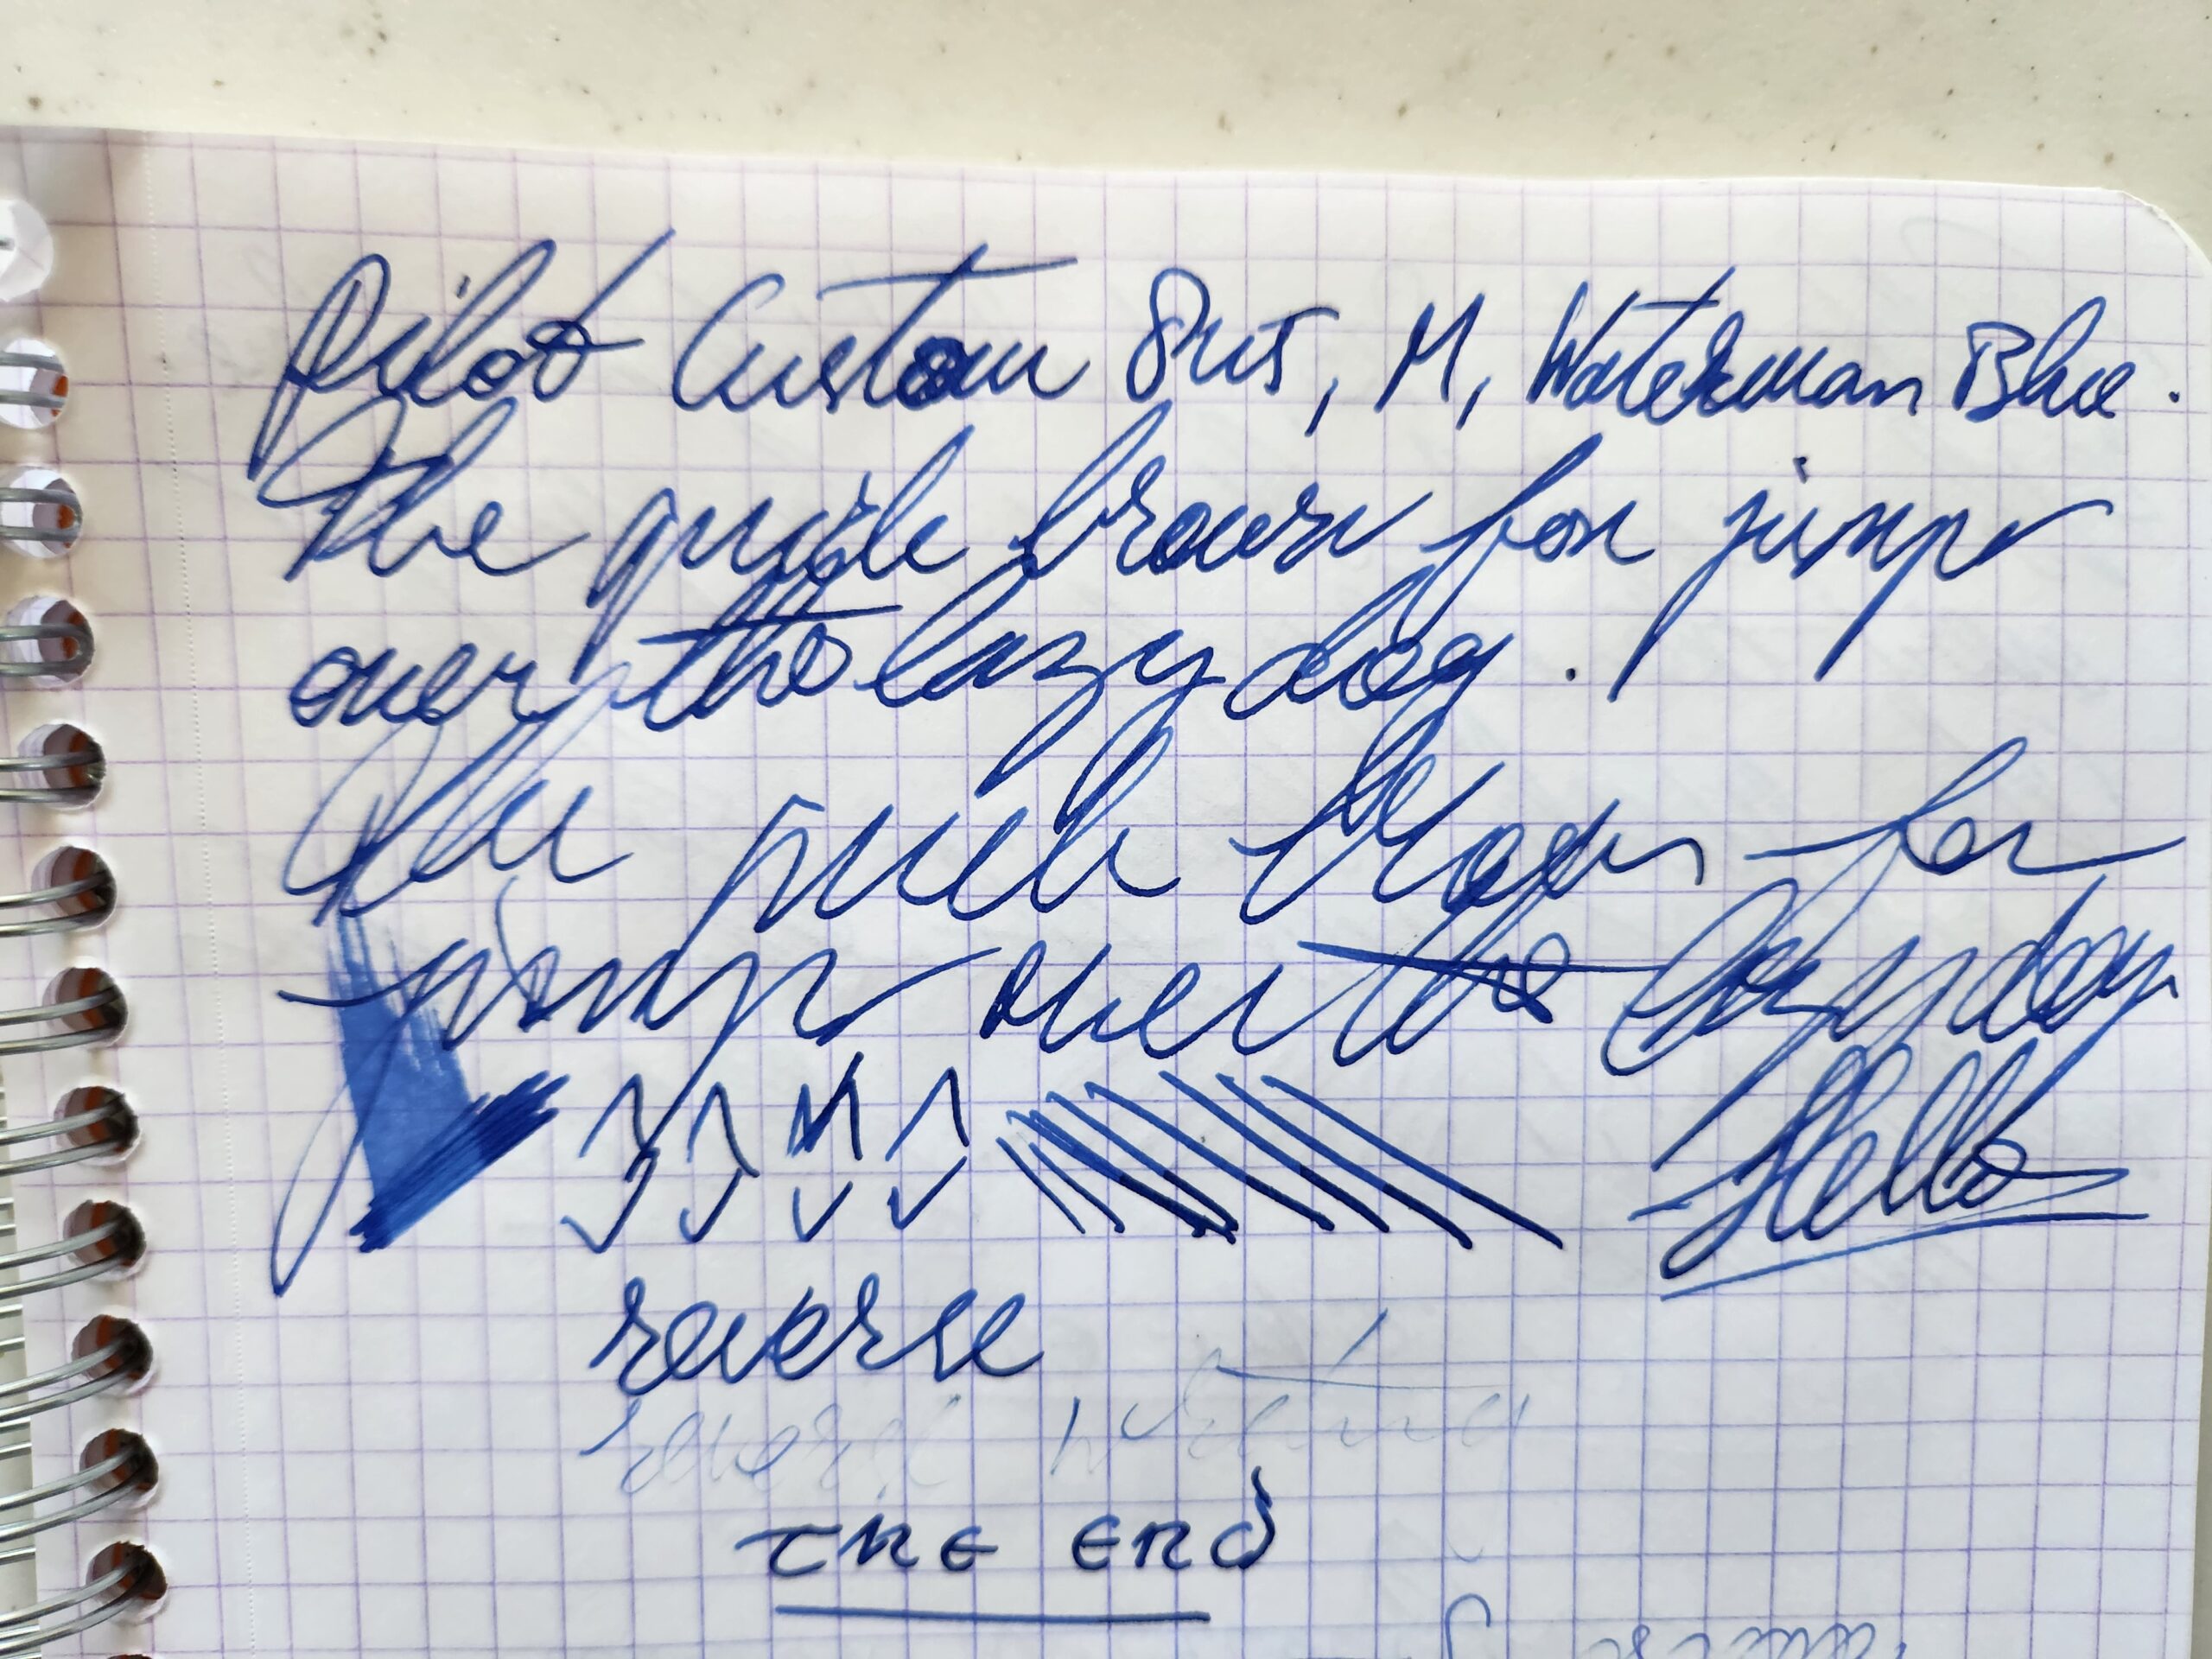 Pilot Custom , M, Waterman Blue.
The quick brown fox jumps
over the lazy dog.
The quick brown fox
jumps over the lazy dog
Hello
reverse
reverse writing
THE END